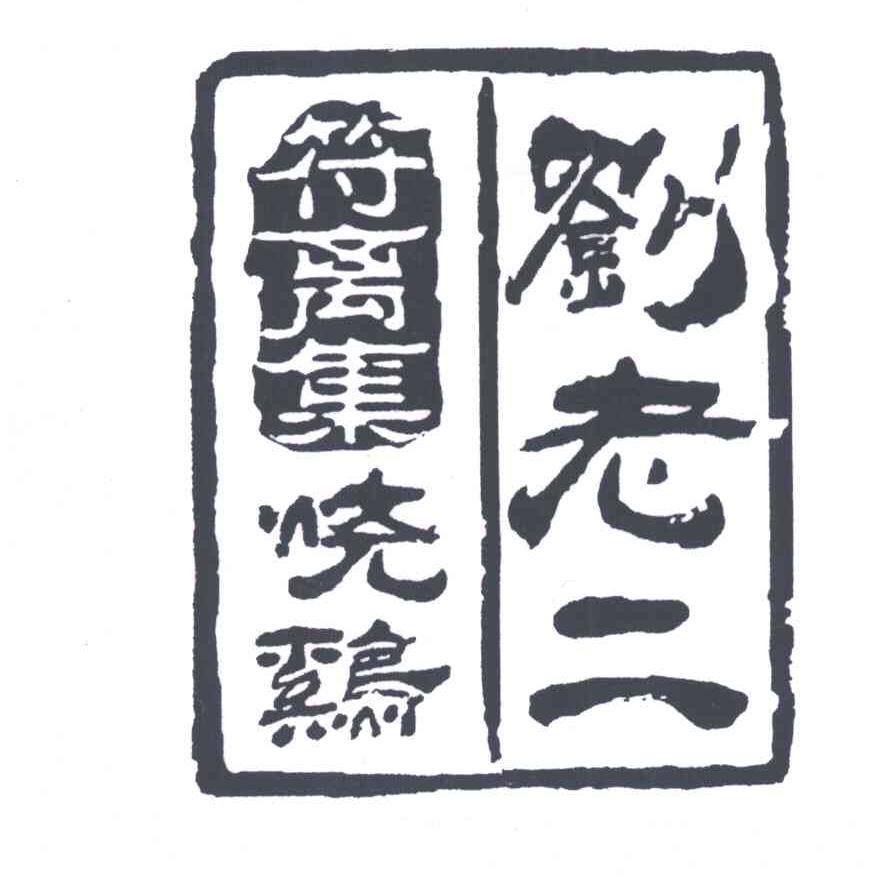 劉老二
符离集烧鷄